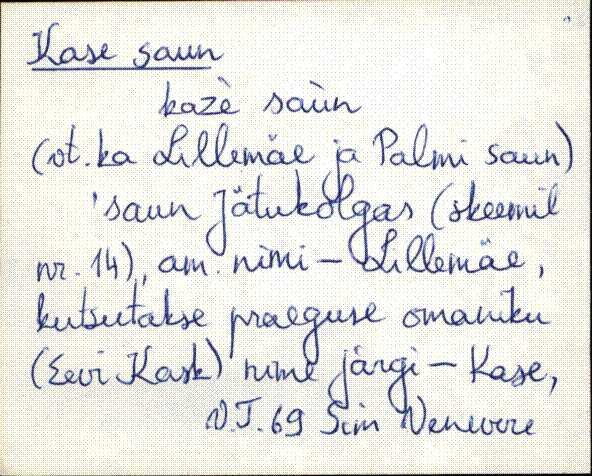 Kase saun
kazè saùn
(vt. ka Lillemäe ja Palmi saun)
'saun Jätukolgas (skeemil
nr. 14), am. nimi – Lillemäe,
kutsutakse praeguse omaniku
(Eevi Kask) nime järgi – Kase,
V.J. 69 Sim Venevere